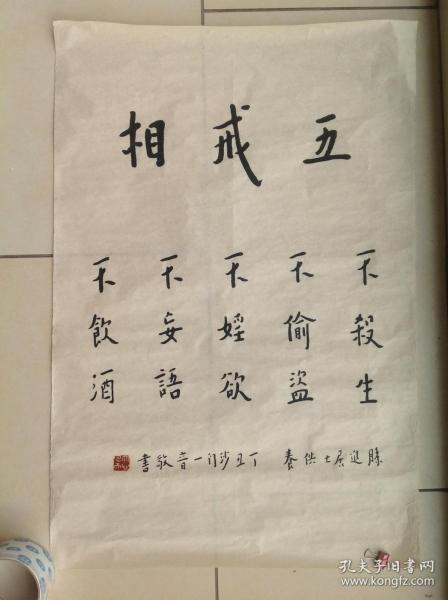 五戒相
不殺生
不偷盜
不婬欲
不妄語
不飲酒
勝進居士供養 丁丑沙门一音敬書
孔夫子旧书网
www.kongfz.com